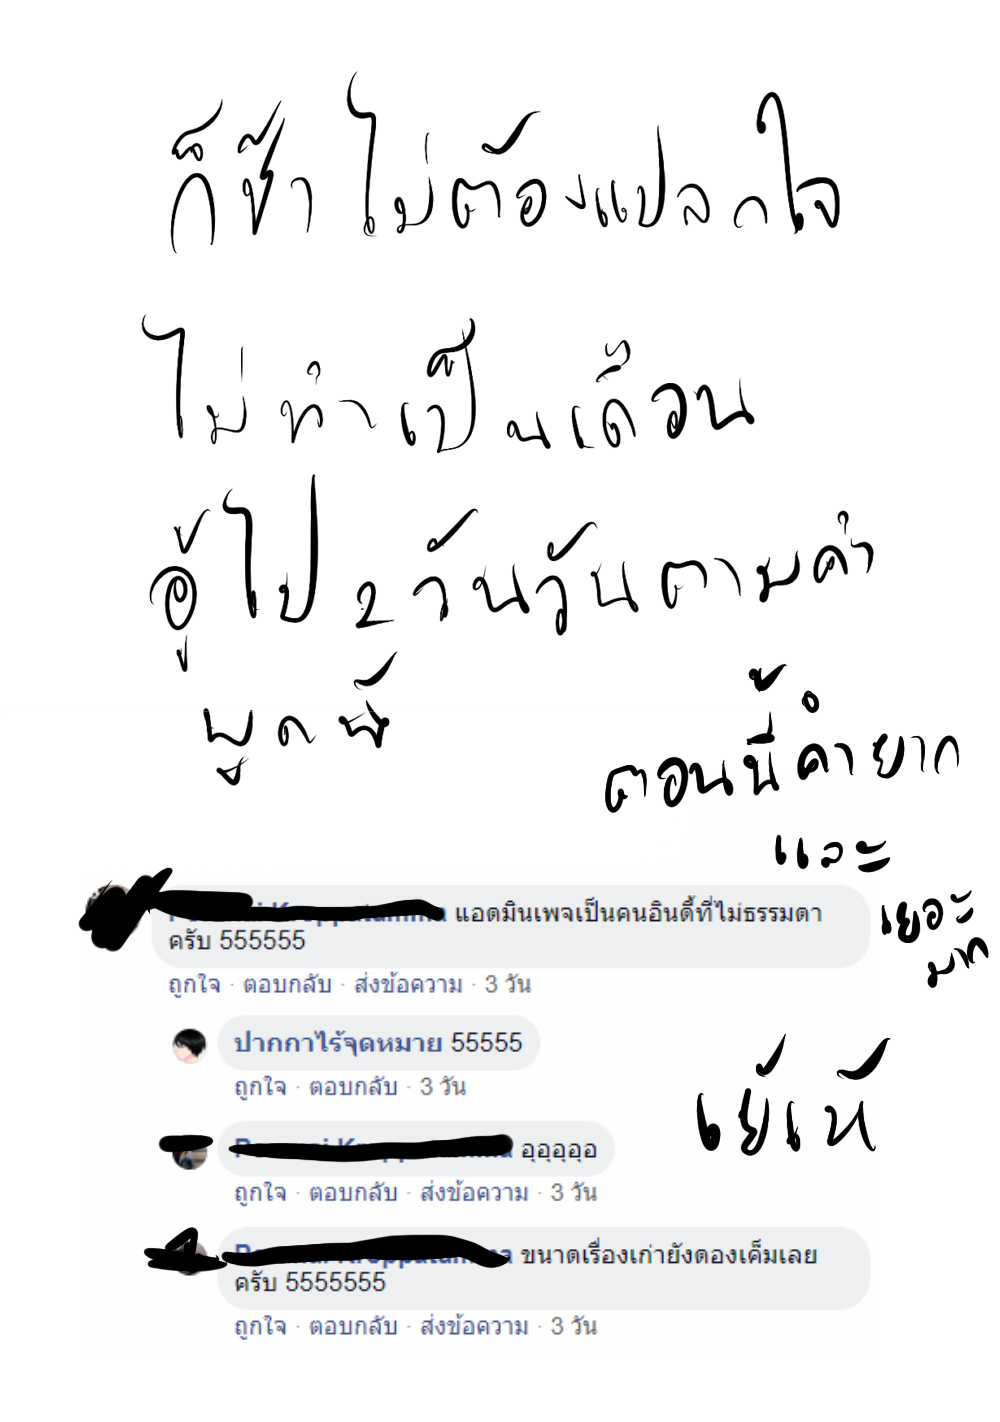 ก็ช้า ไม่ต้องแปลกใจ
ไม่ทำเป็นเดือน
อู้ไป 2 วันวันตามคำ
พูดพี่
ตอนนี้คำยาก
และ
เยอะ
มาก
แอดมินเพจเป็นคนอินดี้ที่ไม่ธรรมดา
ครับ 555555
ถูกใจ · ตอบกลับ · ส่งข้อความ · 3 วัน
ปากกาไร้จุดหมาย 55555
ถูกใจ · ตอบกลับ · 3 วัน
เย้เห้
อุอุอุอุอ
ถูกใจ · ตอบกลับ · ส่งข้อความ · 3 วัน
ขนาดเรื่องเก่ายังดองเค็มเลย
ครับ 5555555
ถูกใจ · ตอบกลับ · ส่งข้อความ · 3 วัน